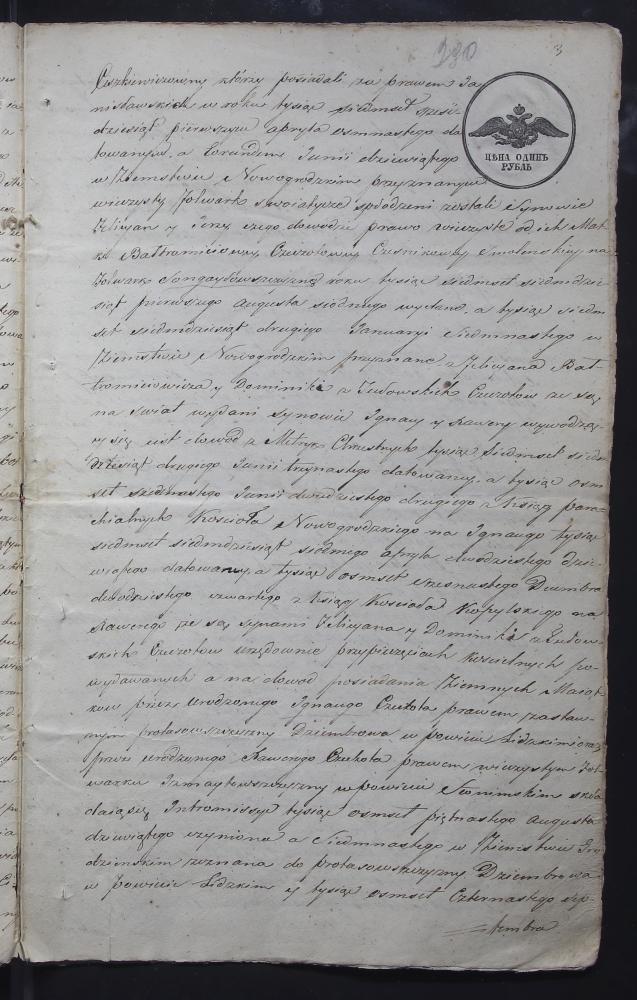 280
3
ЦѢНА ОДИНЪ
РУБЛЬ
Czekiewiczowny którzy posiadali za prawem Ja
nisławskich w roku tysiąc siedmset sześć
dziesiąt pierwszym apryla osmnastego da
towanym, a Eorundem Junii dziewiątego
w Ziemstwie Nowogrodzkim przyznanym
wieczysty folwark Swoiatycze spłodzeni zostali Synowie
Felicyan y Jerzy czego dowodzi prawo wieczyste od ich Mat
ki Bałtromieiowey Czeczotowey Cześnikowey Smolenskiey na
folwark roku tysiąc siedmset siedmdzie
siąt pierwszego Augusta siodmego wydane, a tysiąc siedm
set siedmdziesiąt drugiego Januaryi siedmnastego w
Ziemstwie Nowogrodzkim przyznane z Felicyana Bał
tromieiowicza y Dominiki z Czeczotow ze są
na swiat wydani synowie Ignacy y Xawery wywodzą
cy się est dowod z Metryk Chrzestnych tysiąc siedmset siedm
dziesiąt drugiego Junii trzynastego datowaney, a tysiąc osm
set siedmnastego Junii dwudziestego drugiego z Xiąg para
chialnych Koscioła Nowogrodzkiego na Ignacego tysiąc
siedmset siedmdziesiąt siodmego apryla dwudziestego dzie
wiątego datowaney, a tysiąc osmset szesnastego Decembra
dwudziestego czwartego z Xiąg Koscioła Kopylskiego na
Xawerego ze są synami Felicyana y Dominiki z
skich Czeczotow urzędownie przy pieczęciach koscielnych po
wydawanych a na dowod posiadania Ziemnych Maiąt
kow przez urodzonego Ignacego Czeczota prawem zastaw
nym Protasowszczyzny Dziembrowa w powiecie Lidzkim oraz
przez urodzonego Xawerego Czeczota prawem wieczystym fol
warku w powiecie Słonimskim skła
daiąsię Intromissye tysiąc osmset piętnastego Augusta
dziewiątego czyniona a siedmnastego w Ziemstwie Gro
dzienskim zeznana do Protasowszczyzny Dziembrowa
w powiecie Lidzkim y tysiąc osmset czternastego Sep
tembra